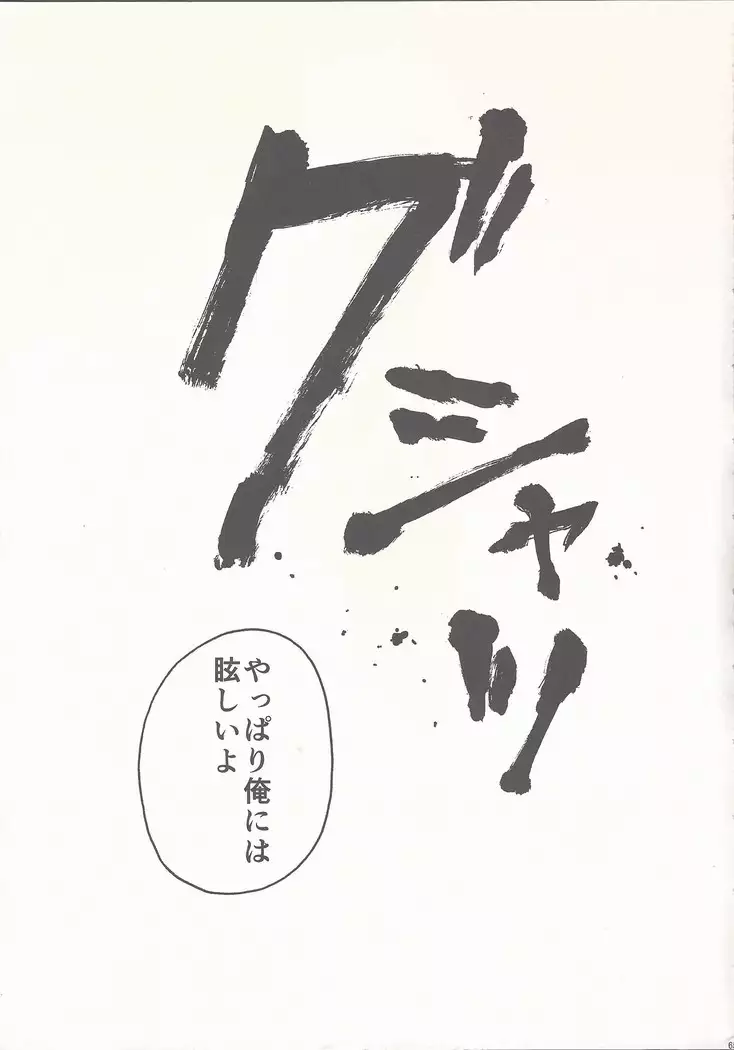 グシャッ
やっぱり俺には
眩しいよ